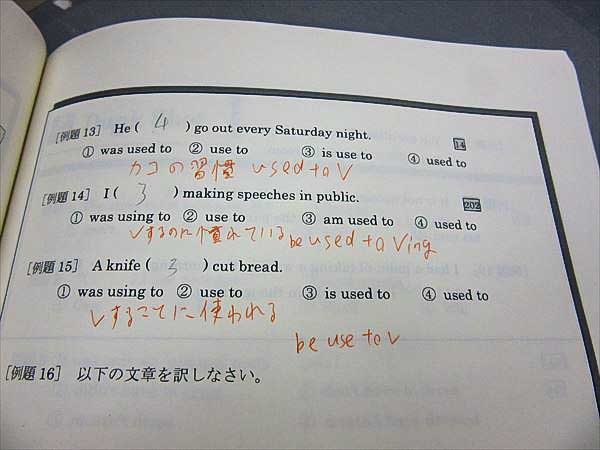 [例題13] He ( 4 ) go out every Saturday night.
14
① was used to ② use to ③ is use to ④ used to
カコの習慣 used to V
[例題14] I ( 3 ) making speeches in public.
202
① was using to ② use to ③ am used to ④ used to
Vするのに慣れている be used to Ving
[例題15] A knife ( 3 ) cut bread.
① was using to ② use to ③ is used to ④ used to
Vすることに使われる
be use to V
[例題16] 以下の文章を訳しなさい。